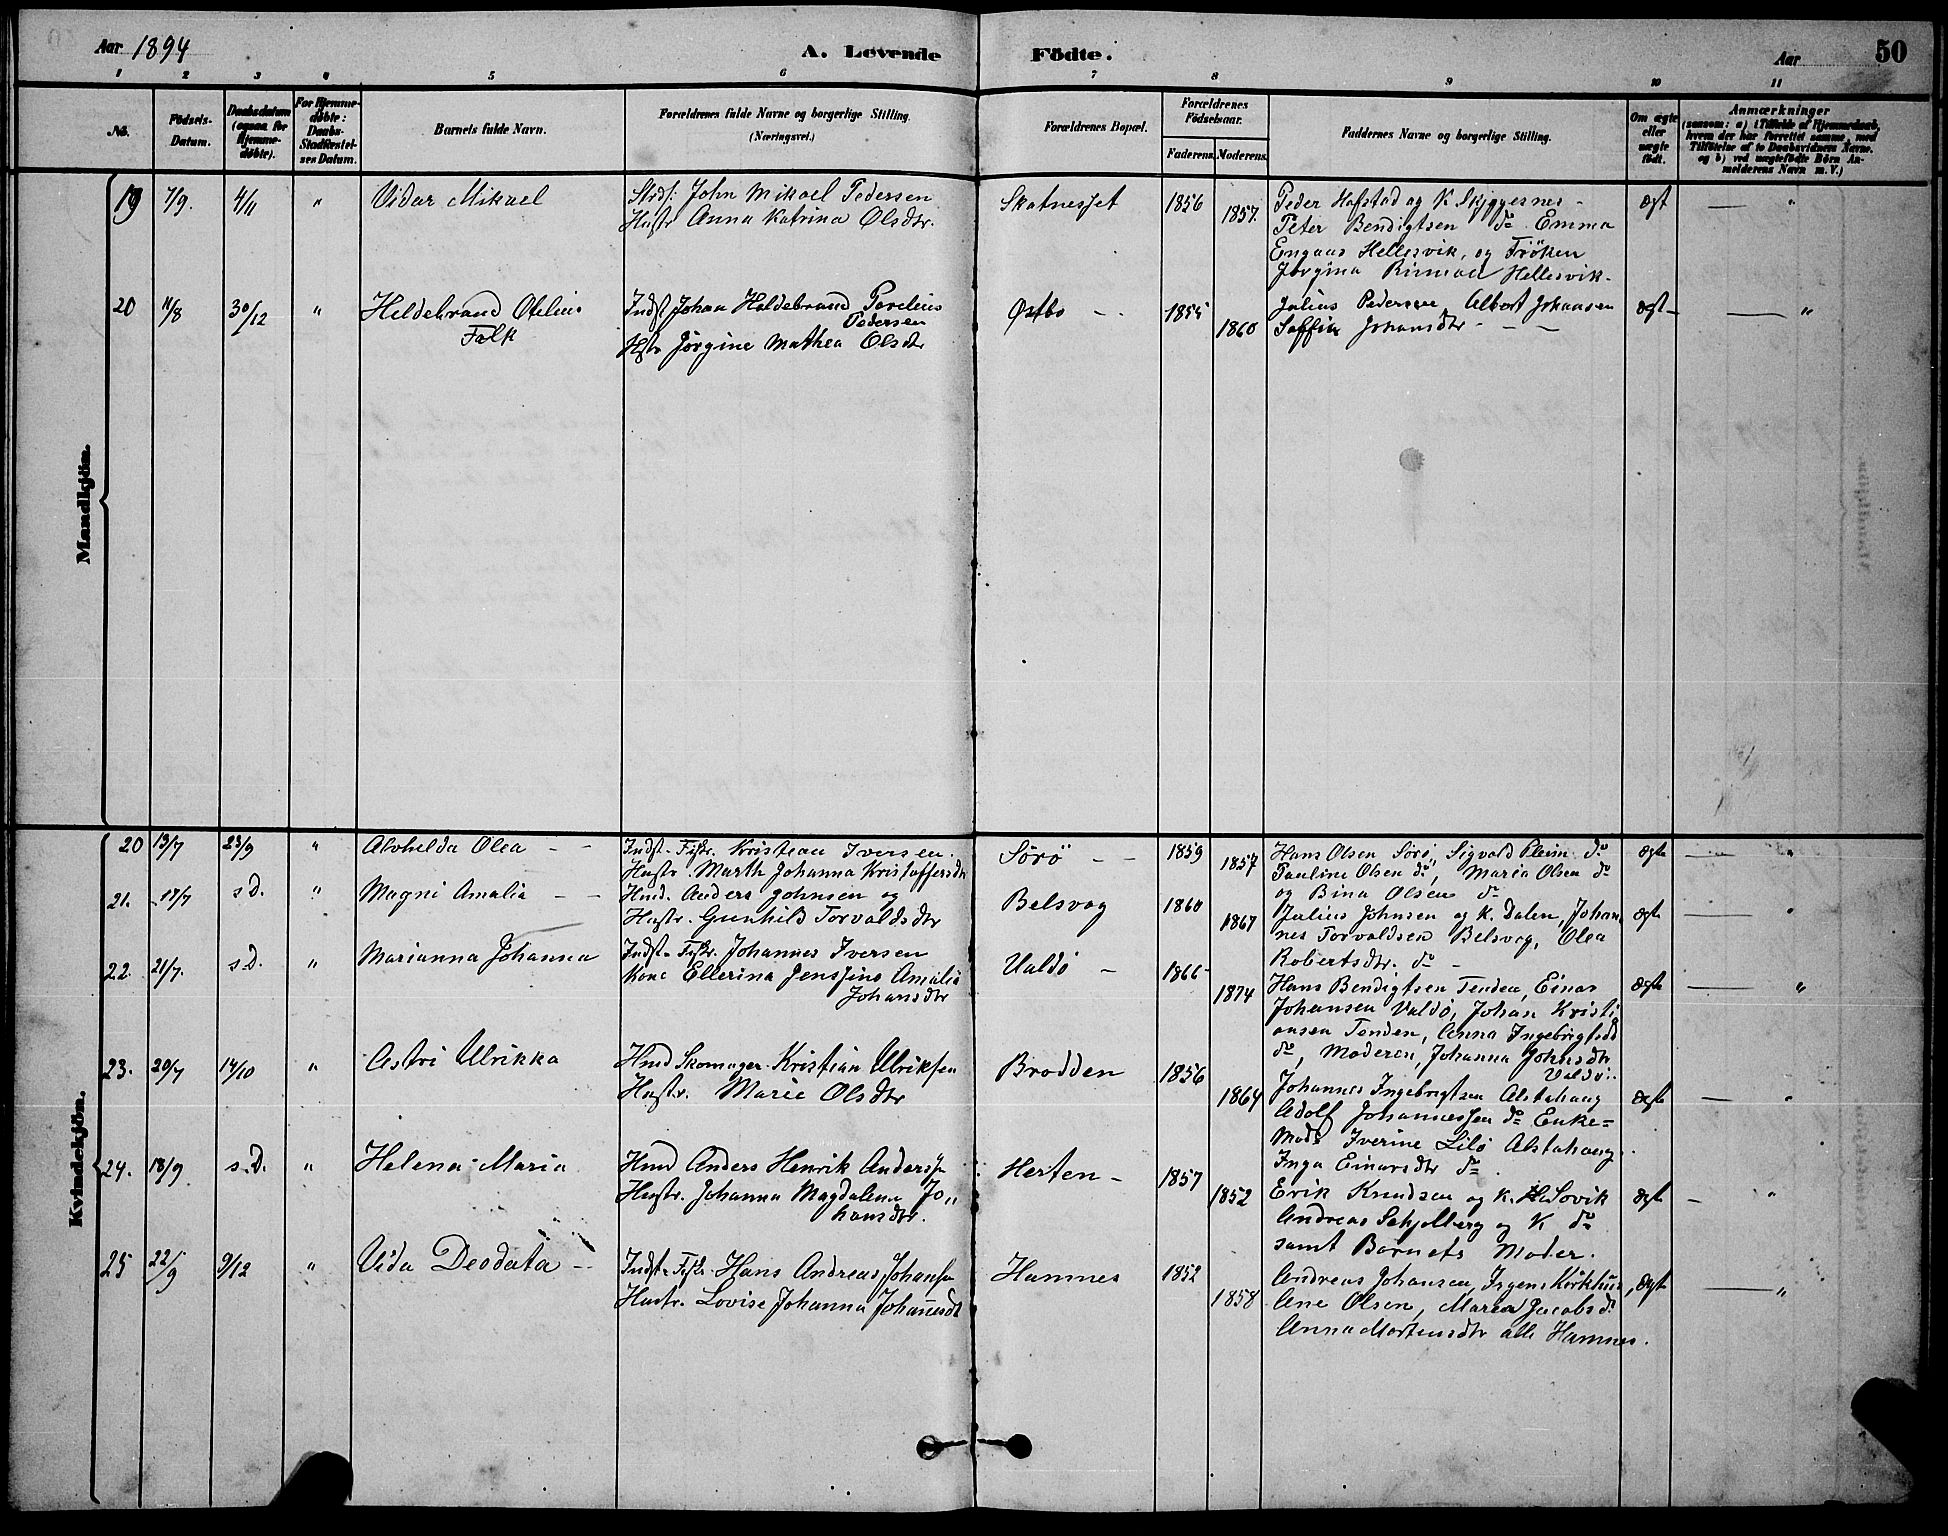 Aar 1894
A. Levende Födte.
Aar
50
1 2 3 4 5 6 7 8 9 10 11
No.
Födsels-Datum.
Daabsdatum (ogsaa for Hjemme-döbte).
For Hjemme-döbte: Daabs-Stadfæstel-ses Datum.
Barnets fulde Navn.
Forældrenes fulde Navne og borgerlige Stilling.
(Næringsvei.)
Forældrenes Bopæl.
Forældrenes Födselsaar.
Faderens. Moderens.
Faddernes Navne og borgerlige Stilling.
Om ægte eller uægte födt.
Anmærkninger
(saasom: a) i Tilfælde af Hjemmedaab,
hvem der har forrettet samme, med
Tilföielse af to Daabsvidners Navne.
og b) ved uægtefödte Börn An-
melderens Navn m. V.)
Mandkjön.
19 7/9. 4/11 " Vidar Mikael
John Mikael Pedersen
Hustr Anna Katrina Olsdtr.
Skatnesset 1856 1857.
Peder Hofstad og K Skjeggesnes -
Peter Bendigtsen do Emma
Engaas Hellesvik, og Fröken
Jørgina Hellesvik.
ægt "
20 11/8 30/12 " Hildebrand Otelius
Falk
Indst Johan Hildebrand
Pedersen
Hstr Jörgine Mathea Olsdtr
Østbo - - 1855 1860
Julius Pedersen Albert Johansen
Soffia Johansdtr - - -
ægt "
Kvindekjön.
20 13/7 23/9 " Alvhilda Olea - -
Indst. Fiskr. Kristian Iversen.
Hustr. Marth Johanna Kristoffersdtr
Sörö - - 1859 1857
Hans Olsen Sörö, Sigvald do
Pauline Olsen do, Maria Olsen do
og Bina Olsen do
ægte "
21. 17/7 s.D. " Magni Amalia - -
Hmd. Anders Johnsen og
Hustr. Gunhild Torvaldsdtr
Belsvog 1860 1867
Julius Johnsen og K. Dalen, Johan
nes Torvaldsen Belsvog, Olea
Robertsdtr. do -
ægte "
22. 21/7. s.D. " Marianna Johanna
Indst. Fiskr. Johannes Iversen
Kone Ellerina Jenssine Amalia
Johansdtr
Valdö - 1866 1874
Hans Bendigtsen Tenden, Einar
Johansen Valdö, Johan Kristi
ansen Tenden, Anna Ingebrigtsd
do, Moderen, Johanna Johnsdtr
Valdö.
ægte "
23. 20/7 14/10 " Astri Ulrikka
Hmd Skomager Kristian Ulriksen
Hustr. Marie Olsdtr
Brodden 1856 1864
Johannes Ingebrigtsen Alstahaug
Adolf Johannessen do Enke=
Mad. Iverine Lilö Alstahaug.
Inga Einarsdtr do.
ægte "
24. 18/9 s.D. " Helena Maria
Hmd Anders Henrik Anderss
Hustr. Johanna Magdalena Jo"
hansdtr.
Herten - 1857 1852
Erik Knudsen og K. Sovik
Andreas Schjelberg og K do
samt Barnets Moder.
ægte "
25 22/9 9/12 " Vida Deodata -
Indst. Fiskr. Hans Andreas Johans
Hustr. Lovise Johanna Johannesdt
Hamnes 1852 1858
Andreas Johansen,
Ane Olsen, Maria Jacobsd.
Anna Mortensdtr alle Hamnes.
ægte "